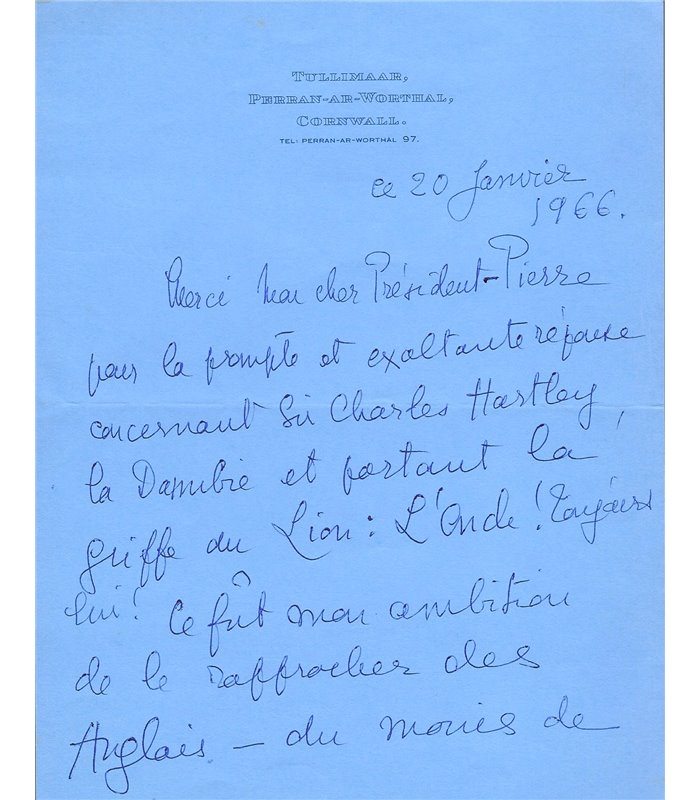 TULLIMAAR,
PERRAN-AR-WORTHAL,
CORNWALL.
TEL: PERRAN-AR-WORTHAL 97.
ce 20 Janvier
1966.
Merci Mon cher Président-Pierre
pour la prompte et exaltante réponse
concernant Sir Charles Hartley,
la Danubie et portant la
griffe du Lion: L'Onde! Toujours
lui! Ce fût mon ambition
de le rapprocher des
Anglais – du moins de